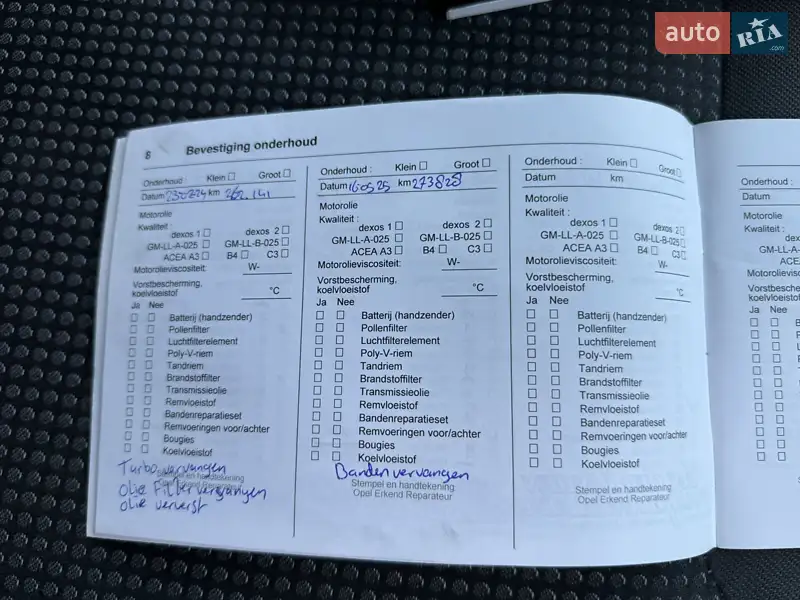 auto RIA .com
8 Bevestiging onderhoud
Onderhoud : Klein Groot
Datum 230724 km 262.141
Motorolie
Kwaliteit :
dexos 1 dexos 2
GM-LL-A-025 GM-LL-B-025
ACEA A3 B4 C3
Motorolieviscositeit: W-
Vorstbescherming,
koelvloeistof °C
Ja Nee
Batterij (handzender)
Pollenfilter
Luchtfilterelement
Poly-V-riem
Tandriem
Brandstoffilter
Transmissieolie
Remvloeistof
Bandenreparatieset
Remvoeringen voor/achter
Bougies
Koelvloeistof
Turbo vervangen
Stempel en handtekening
Opel Erkend Reparateur
olie Filter vervangen
olie ververst
Onderhoud : Klein Groot
Datum 160525 km 273828
Motorolie
Kwaliteit :
dexos 1 dexos 2
GM-LL-A-025 GM-LL-B-025
ACEA A3 B4 C3
Motorolieviscositeit: W-
Vorstbescherming,
koelvloeistof °C
Ja Nee
Batterij (handzender)
Pollenfilter
Luchtfilterelement
Poly-V-riem
Tandriem
Brandstoffilter
Transmissieolie
Remvloeistof
Bandenreparatieset
Remvoeringen voor/achter
Bougies
Koelvloeistof
Banden vervangen
Stempel en handtekening
Opel Erkend Reparateur
Onderhoud : Klein Groot
Datum km
Motorolie
Kwaliteit :
dexos 1 dexos 2
GM-LL-A-025 GM-LL-B-025
ACEA A3 B4 C3
Motorolieviscositeit: W-
Vorstbescherming,
koelvloeistof °C
Ja Nee
Batterij (handzender)
Pollenfilter
Luchtfilterelement
Poly-V-riem
Tandriem
Brandstoffilter
Transmissieolie
Remvloeistof
Bandenreparatieset
Remvoeringen voor/achter
Bougies
Koelvloeistof
Stempel en handtekening
Opel Erkend Reparateur
Onderhoud :
Datum
Motorolie
Kwaliteit :
GM-LL-A
ACEA
Ja Nee